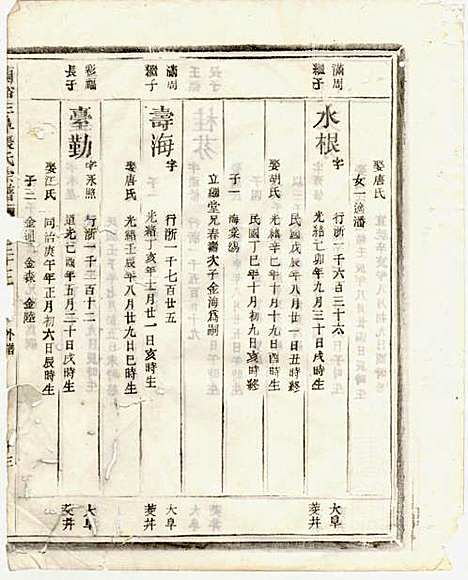 娶唐氏
女一適潘
滿周
繼子
水根
字
行所一千六百三十六
光緒己卯年九月三十日戌時生
民國戊辰年八月廿一日丑時終
娶胡氏
光緒辛巳年十月十九日酉時生
民國丁巳年十月初九日亥時終
子一
海棠殤
立繼堂兄春濤次子金海為嗣
大阜
菱井
滿周
繼子
壽海
字
行所一千七百廿五
光緒丁亥年十月廿一日亥時生
娶氏
光緒壬辰年八月廿九日巳時生
大阜
菱井
彩瑞
長子
臺勤
字永照
行所一千三百十二
道光己酉年五月二十日戌時生
娶江氏
同治庚午年正月初六日辰時生
子三
金通
金森
金陸
大阜
菱井
氏宗譜
外譜